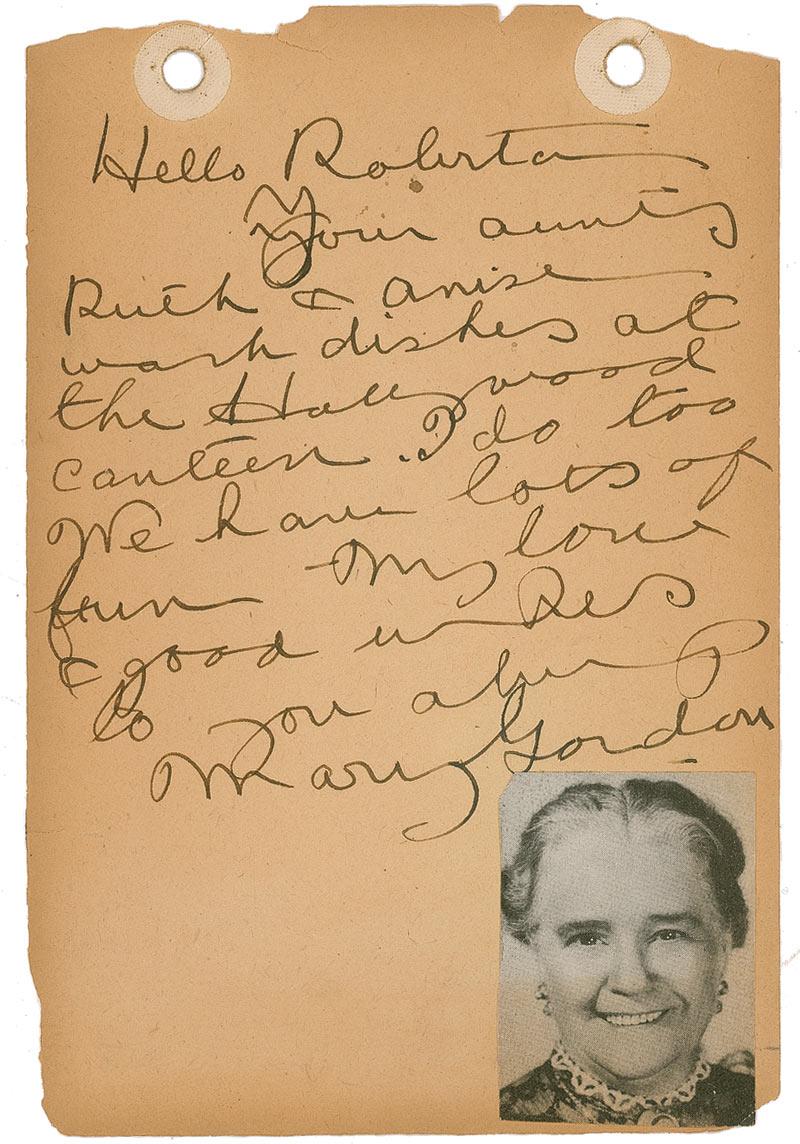 Hello Roberta
Your aunts
Ruth & Anise
wash dishes at
the Hollywood
canteen. I do too
We have lots of
fun My love
& good wishes
to you
Mary Gordon